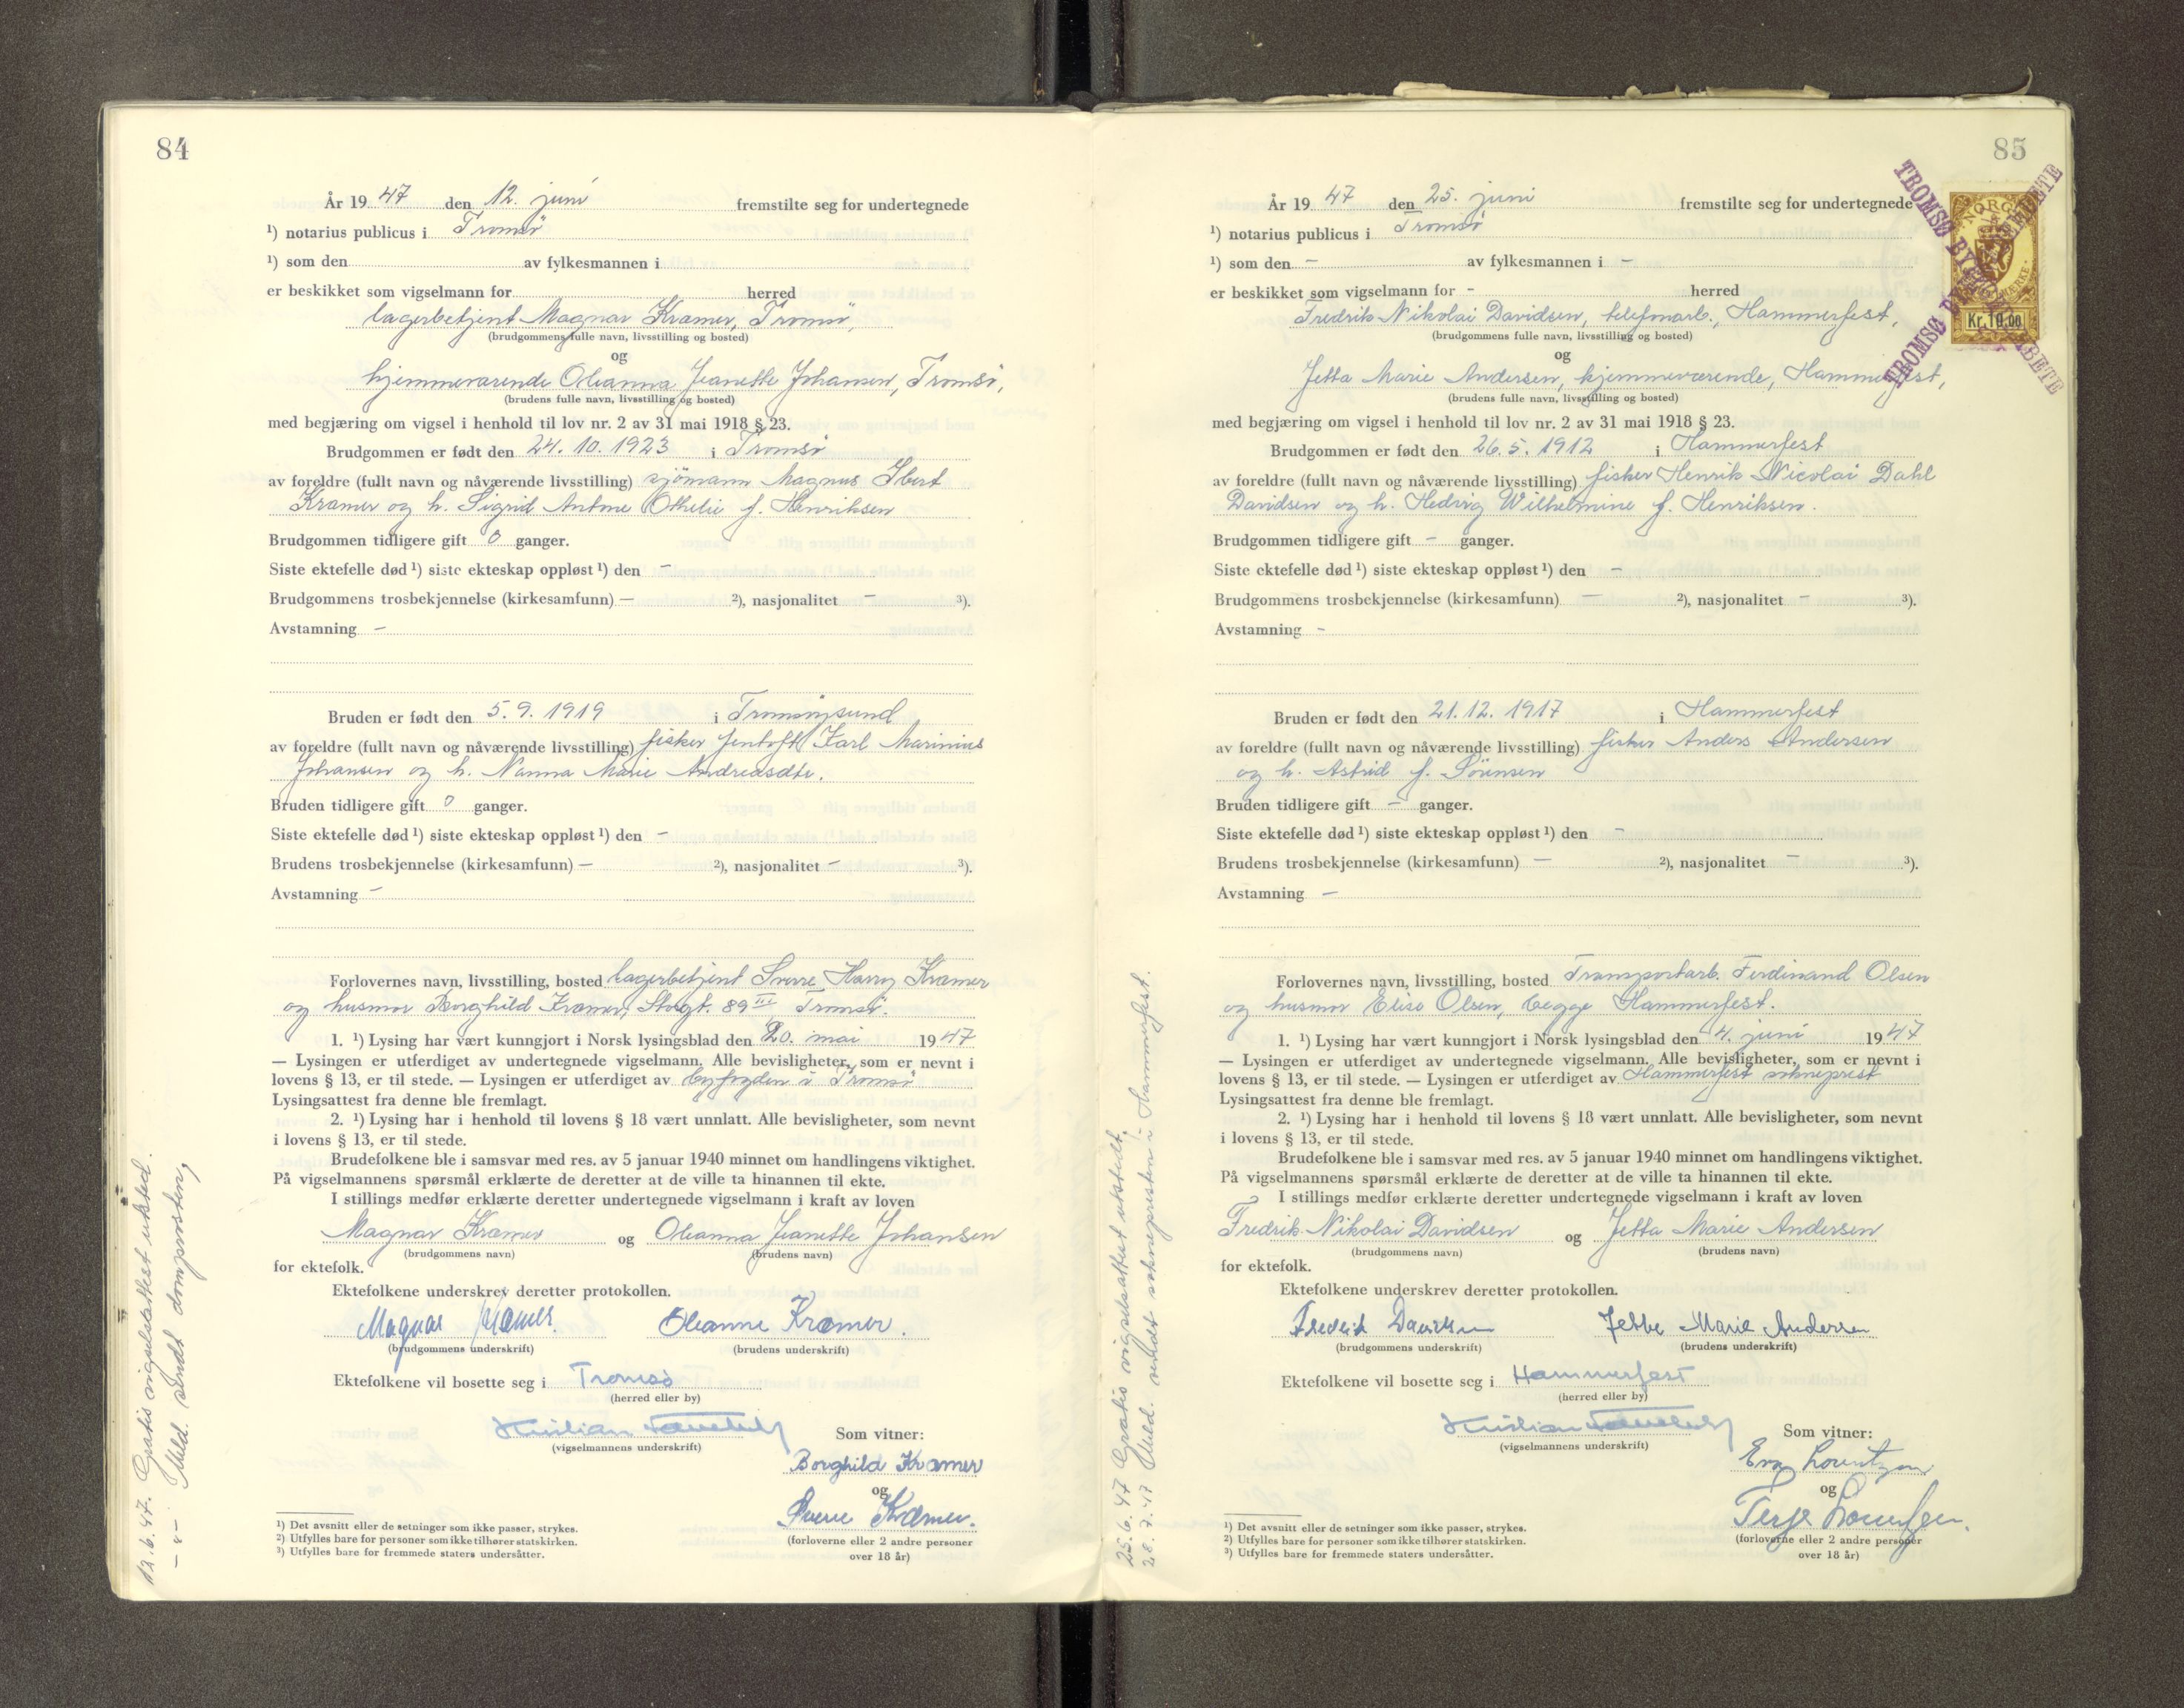 84
År 19 47 den 12. juni fremstilte seg for undertegnede
¹) notarius publicus i Tromsö
¹) som den av fylkesmannen i
er beskikket som vigselmann for herred
lagerbetjent Magnar Kramer, Tromsö,
(brudgommens fulle navn, livsstilling og bosted)
og
hjemmeværende Oleanna Jeanette Johansen, Tromsö,
(brudens fulle navn, livsstilling og bosted)
med begjæring om vigsel i henhold til lov nr. 2 av 31 mai 1918 § 23.
Brudgommen er født den 24. 10. 1923 i Tromsö
av foreldre (fullt navn og nåværende livsstilling) sjömann Magnus Ibert
Kramer og h. Sigrid Antone Othelie f. Henriksen
Brudgommen tidligere gift 0 ganger.
Siste ektefelle død ¹) siste ekteskap oppløst ¹) den –
Brudgommens trosbekjennelse (kirkesamfunn) – ²), nasjonalitet – ³).
Avstamning –
Bruden er født den 5. 9. 1919 i Tromsöysund
av foreldre (fullt navn og nåværende livsstilling) fisker Jentoft Karl Marinius
Johansen og h. Nanna Marie Andreasdtr.
Bruden tidligere gift 0 ganger.
Siste ektefelle død ¹) siste ekteskap oppløst ¹) den –
Brudens trosbekjennelse (kirkesamfunn) – ²), nasjonalitet – ³).
Avstamning –
Forlovernes navn, livsstilling, bosted lagerbetjent Sverre Harry Kramer
og husmor Borghild Kramer, Storgt. 89 III Tromsö.
1. ¹) Lysing har vært kunngjort i Norsk lysingsblad den 20. mai 19 47
— Lysingen er utferdiget av undertegnede vigselmann. Alle bevisligheter, som er nevnt i
lovens § 13, er til stede. — Lysingen er utferdiget av byfogden i Tromsö
Lysingsattest fra denne ble fremlagt.
2. ¹) Lysing har i henhold til lovens § 18 vært unnlatt. Alle bevisligheter, som nevnt
i lovens § 13, er til stede.
Brudefolkene ble i samsvar med res. av 5 januar 1940 minnet om handlingens viktighet.
På vigselmannens spørsmål erklærte de deretter at de ville ta hinannen til ekte.
I stillings medfør erklærte deretter undertegnede vigselmann i kraft av loven
Magnar Kramer og Oleanna Jeanette Johansen
(brudgommens navn) (brudens navn)
for ektefolk.
Ektefolkene underskrev deretter protokollen.
Magnar Kramer. Oleanne Kramer.
(brudgommens underskrift) (brudens underskrift)
Ektefolkene vil bosette seg i Tromsö
(herred eller by)
Som vitner:
(vigselmannens underskrift)
Borghild Kramer
og
Sverre Kramer.
(forloverne eller 2 andre personer
over 18 år)
¹) Det avsnitt eller de setninger som ikke passer, strykes.
²) Utfylles bare for personer som ikke tilhører statskirken.
³) Utfylles bare for fremmede staters undersåtter.
12.6.47. Gratis vigselsattest utsted.
– " – Meld. sendt domprosten,
85
År 19 47 den 25. juni fremstilte seg for undertegnede
¹) notarius publicus i Tromsö
¹) som den – av fylkesmannen i –
er beskikket som vigselmann for – herred
Fredrik Nikolai Davidsen, telefonarb., Hammerfest,
(brudgommens fulle navn, livsstilling og bosted)
og
Jetta Marie Andersen, hjemmeværende, Hammerfest,
(brudens fulle navn, livsstilling og bosted)
med begjæring om vigsel i henhold til lov nr. 2 av 31 mai 1918 § 23.
Brudgommen er født den 26. 5. 1912 i Hammerfest
av foreldre (fullt navn og nåværende livsstilling) fisker Henrik Nicolai Dahl
Davidsen og h. Hedvig Wilhelmine f. Henriksen.
Brudgommen tidligere gift – ganger.
Siste ektefelle død ¹) siste ekteskap oppløst ¹) den –
Brudgommens trosbekjennelse (kirkesamfunn) – ²), nasjonalitet – ³).
Avstamning –
Bruden er født den 21. 12. 1917 i Hammerfest
av foreldre (fullt navn og nåværende livsstilling) fisker Anders Andersen
og h. Astrid f. Sörensen
Bruden tidligere gift – ganger.
Siste ektefelle død ¹) siste ekteskap oppløst ¹) den –
Brudens trosbekjennelse (kirkesamfunn) – ²), nasjonalitet – ³).
Avstamning –
Forlovernes navn, livsstilling, bosted Transportarb. Ferdinand Olsen
og husmor Elise Olsen, begge Hammerfest.
1. ¹) Lysing har vært kunngjort i Norsk lysingsblad den 4. juni 19 47
— Lysingen er utferdiget av undertegnede vigselmann. Alle bevisligheter, som er nevnt i
lovens § 13, er til stede. — Lysingen er utferdiget av Hammerfest sokneprest
Lysingsattest fra denne ble fremlagt.
2. ¹) Lysing har i henhold til lovens § 18 vært unnlatt. Alle bevisligheter, som nevnt
i lovens § 13, er til stede.
Brudefolkene ble i samsvar med res. av 5 januar 1940 minnet om handlingens viktighet.
På vigselmannens spørsmål erklærte de deretter at de ville ta hinannen til ekte.
I stillings medfør erklærte deretter undertegnede vigselmann i kraft av loven
Fredrik Nikolai Davidsen og Jetta Marie Andersen
(brudgommens navn) (brudens navn)
for ektefolk.
Ektefolkene underskrev deretter protokollen.
Frederik Davidsen Jebbe Marie Andersen
(brudgommens underskrift) (brudens underskrift)
Ektefolkene vil bosette seg i Hammerfest
(herred eller by)
Som vitner:
(vigselmannens underskrift)
Eva Lorentzen
og
Terje Lorentzen.
(forloverne eller 2 andre personer
over 18 år)
¹) Det avsnitt eller de setninger som ikke passer, strykes.
²) Utfylles bare for personer som ikke tilhører statskirken.
³) Utfylles bare for fremmede staters undersåtter.
25.6.47 Gratis vigselsattest utstedt.
28.7.47 Meld. sendt soknepresten i Hammerfest.
NORGE
Kr.10.00
TROMSØ
TROMSØ